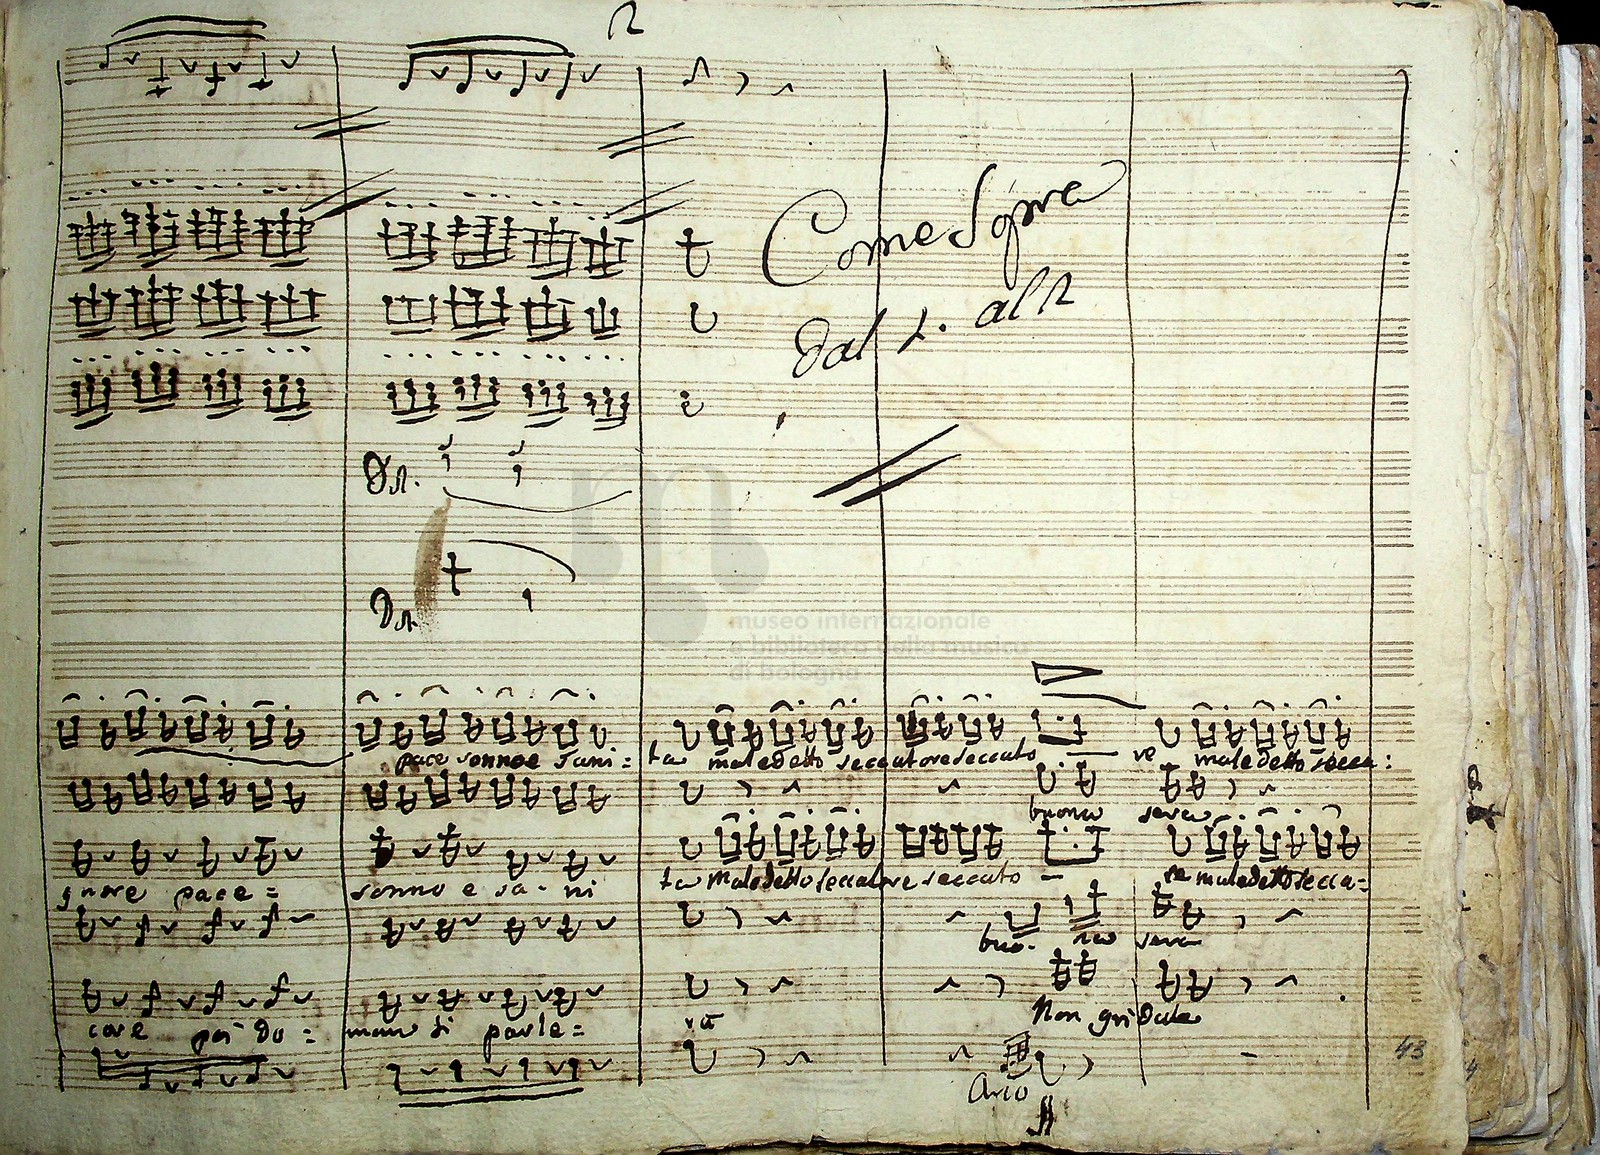 Come Sopra
Dal al
museo internazionale
e biblioteca della musica
di bologna
pace sonno e sani= ta maledetto seccatore seccato re maledetto secca=
buona sera
gnore pace= sonno e sa- ni ta maledetto seccatore seccato - re maledetto secca=
buo- na sera
Non gridate
core poi do= man si parle= rà
43
Arco